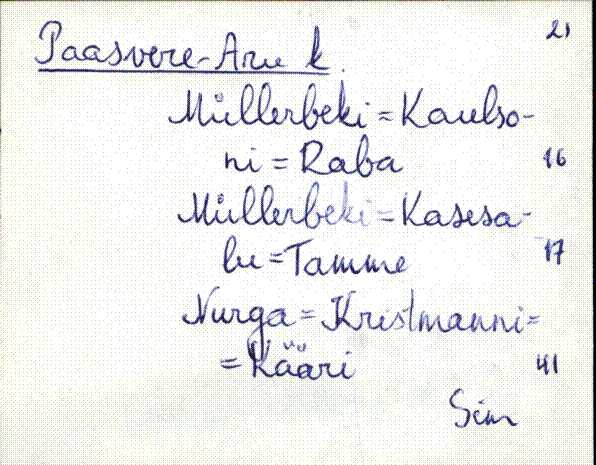 21
Paasvere-Aru k.
Müllerbeki = Kaulso-
ni = Raba 16
Müllerbeki = Kasesa-
lu = Tamme 17
Nurga = Kristmanni =
= Kääri 41
Sim